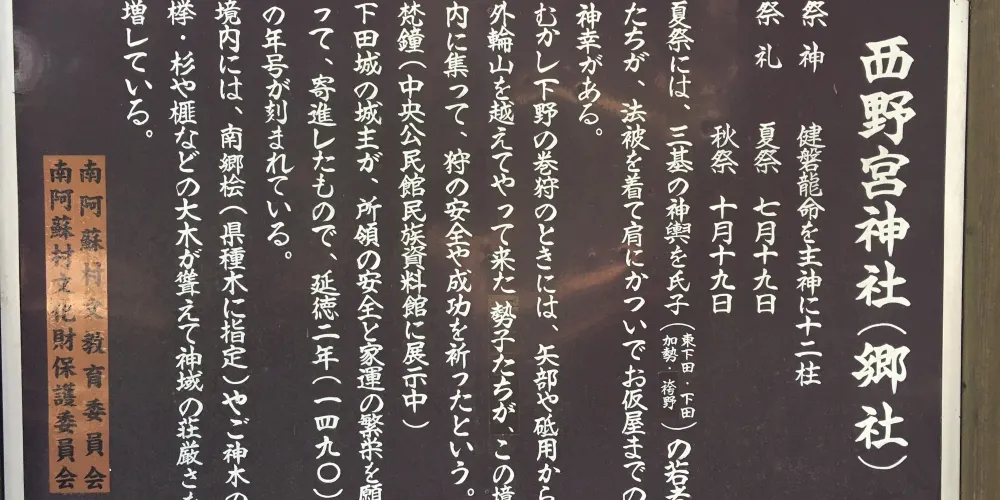 西野宮神社(郷社)
祭神 健磐龍命を主神に十二柱
祭礼 夏祭 七月十九日
秋祭 十月十九日
夏祭には、三基の神輿を氏子(東下田・下田 加勢・袴野)の若者
たちが、法被を着て肩にかついでお仮屋までの
神幸がある。
むかし下野の巻狩のときには、矢部や砥用から
外輪山を越えてやって来た勢子たちが、この境
内に集って、狩の安全や成功を祈ったという。
梵鐘(中央公民館民族資料館に展示中)
下田城の城主が、所領の安全と家運の繁栄を願
って、寄進したもので、延徳二年(一四九〇)
の年号が刻まれている。
境内には、南郷桧(県種木に指定)やご神木の
欅・杉や榧などの大木が聳えて神域の荘厳さを
増している。
南阿蘇村教育委員会
南阿蘇村文化財保護委員会